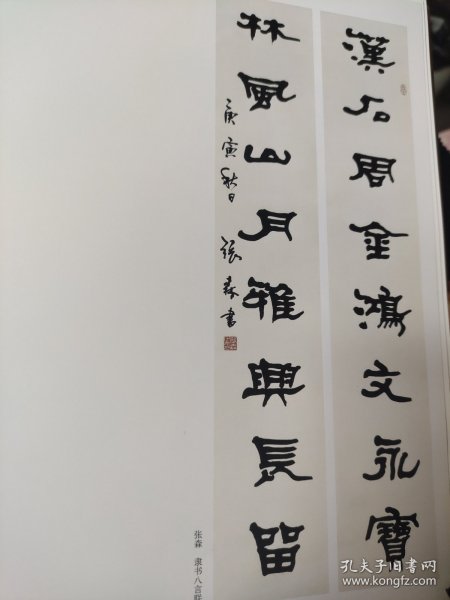 漢石周金鴻文永寶
林風山月雅興長留
庚寅秋日 張森書
张森 隶书八言联
孔夫子旧书网
kongfz.com